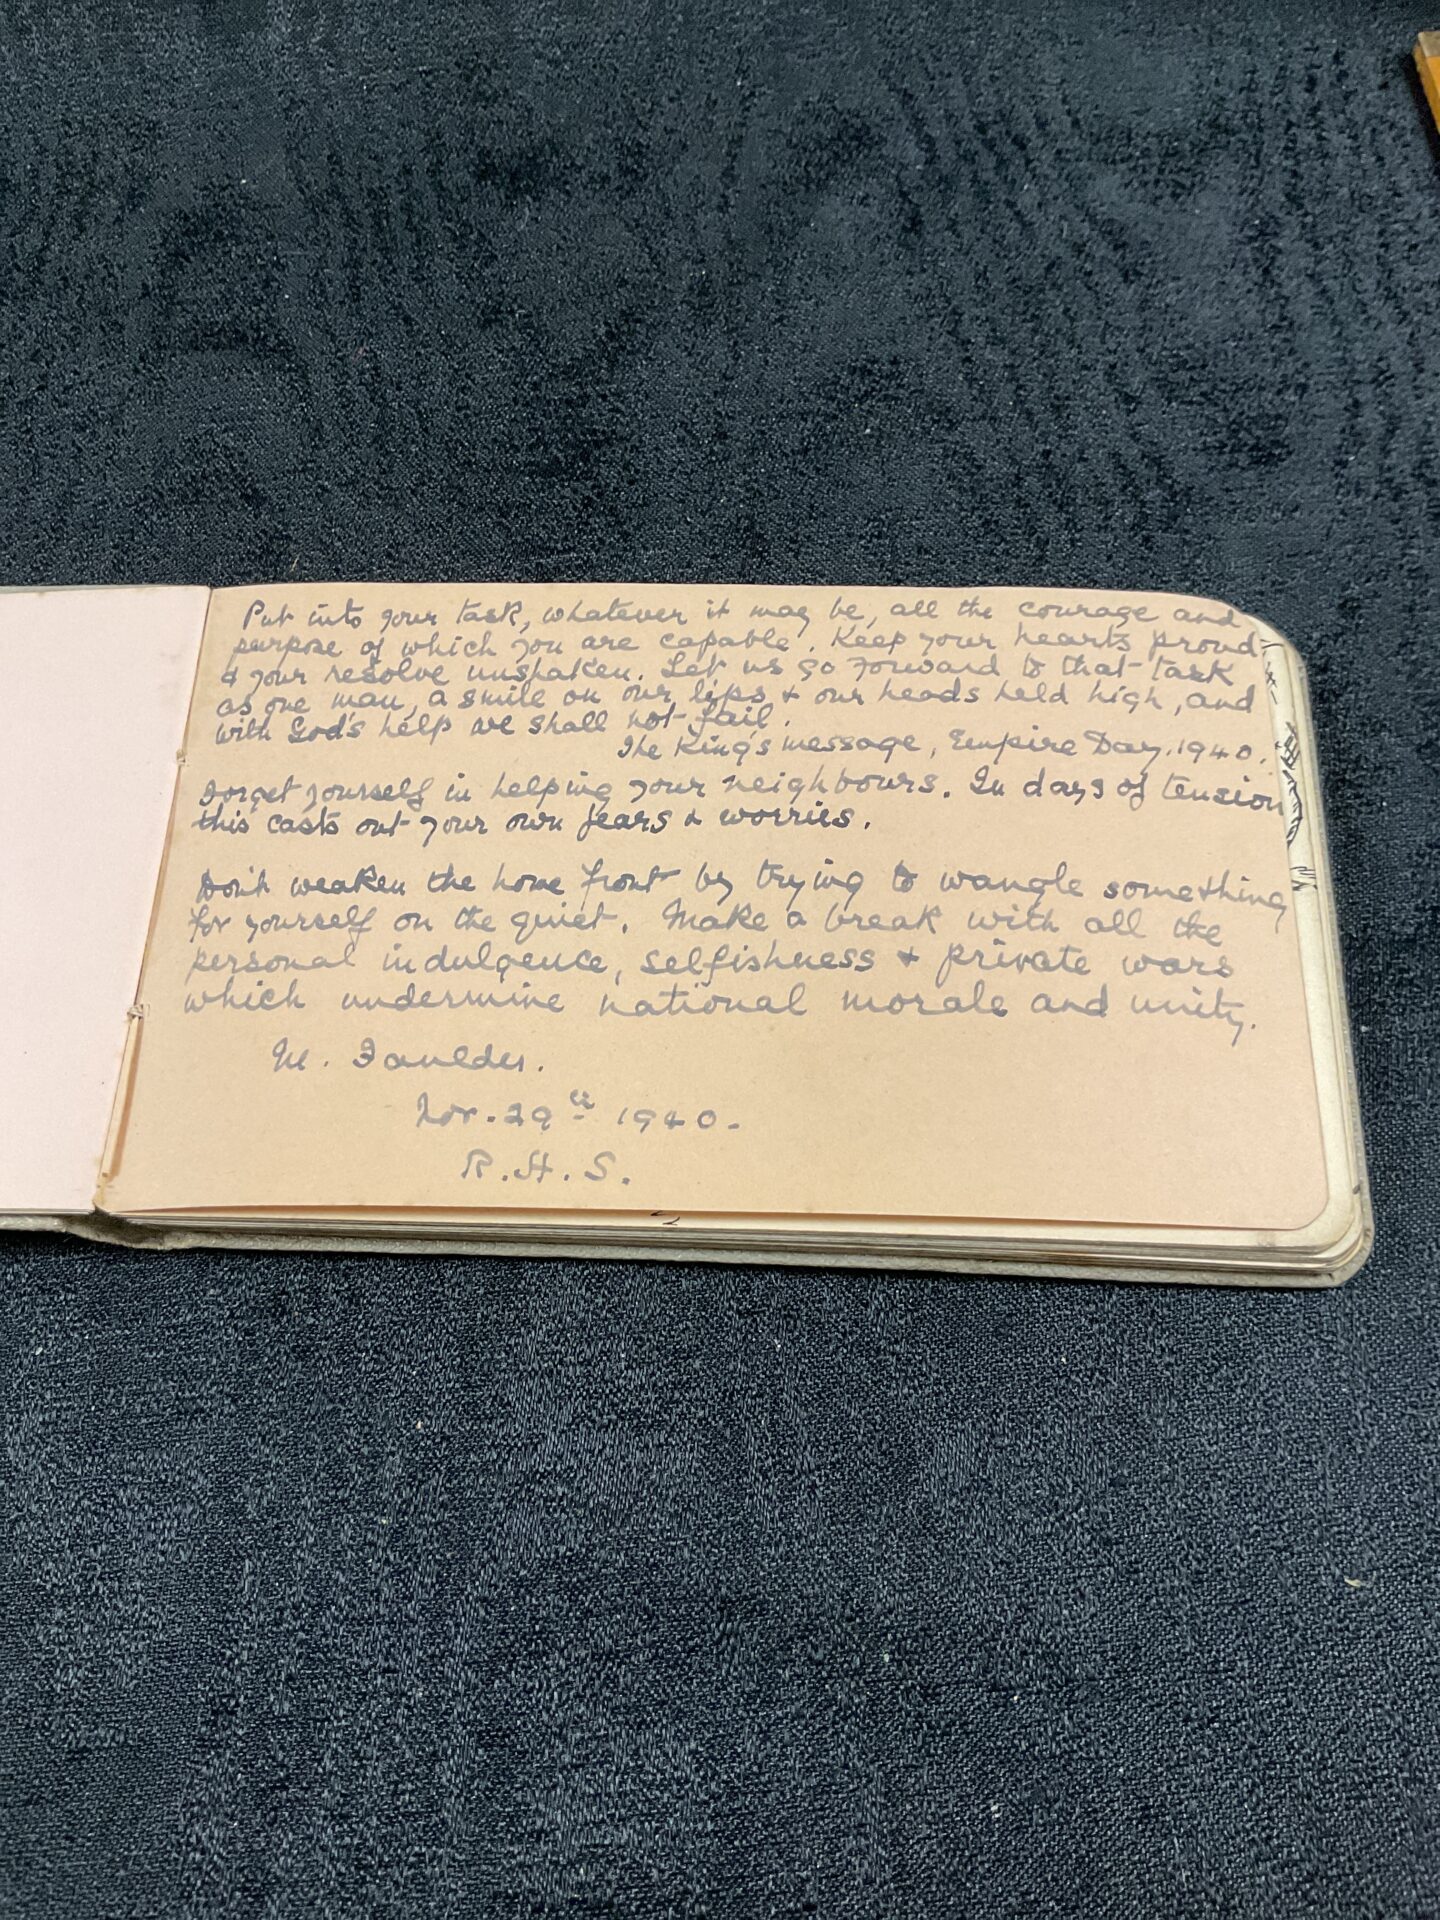 Put into your task, whatever it may be, all the courage and
purpose of which you are capable. Keep your hearts proud
& your resolve unshaken. Let us go forward to that task
as one man, a smile on our lips & our heads held high, and
with God's help we shall not fail.
The King's message, Empire Day. 1940.
Forget yourself in helping your neighbours. In days of tension
this casts out your own fears & worries.
Don't weaken the home front by trying to wangle something
for yourself on the quiet. Make a break with all the
personal indulgence, selfishness & private wars
which undermine national morale and unity.
M. Faulder.
Nov. 29th 1940.
R.H.S.